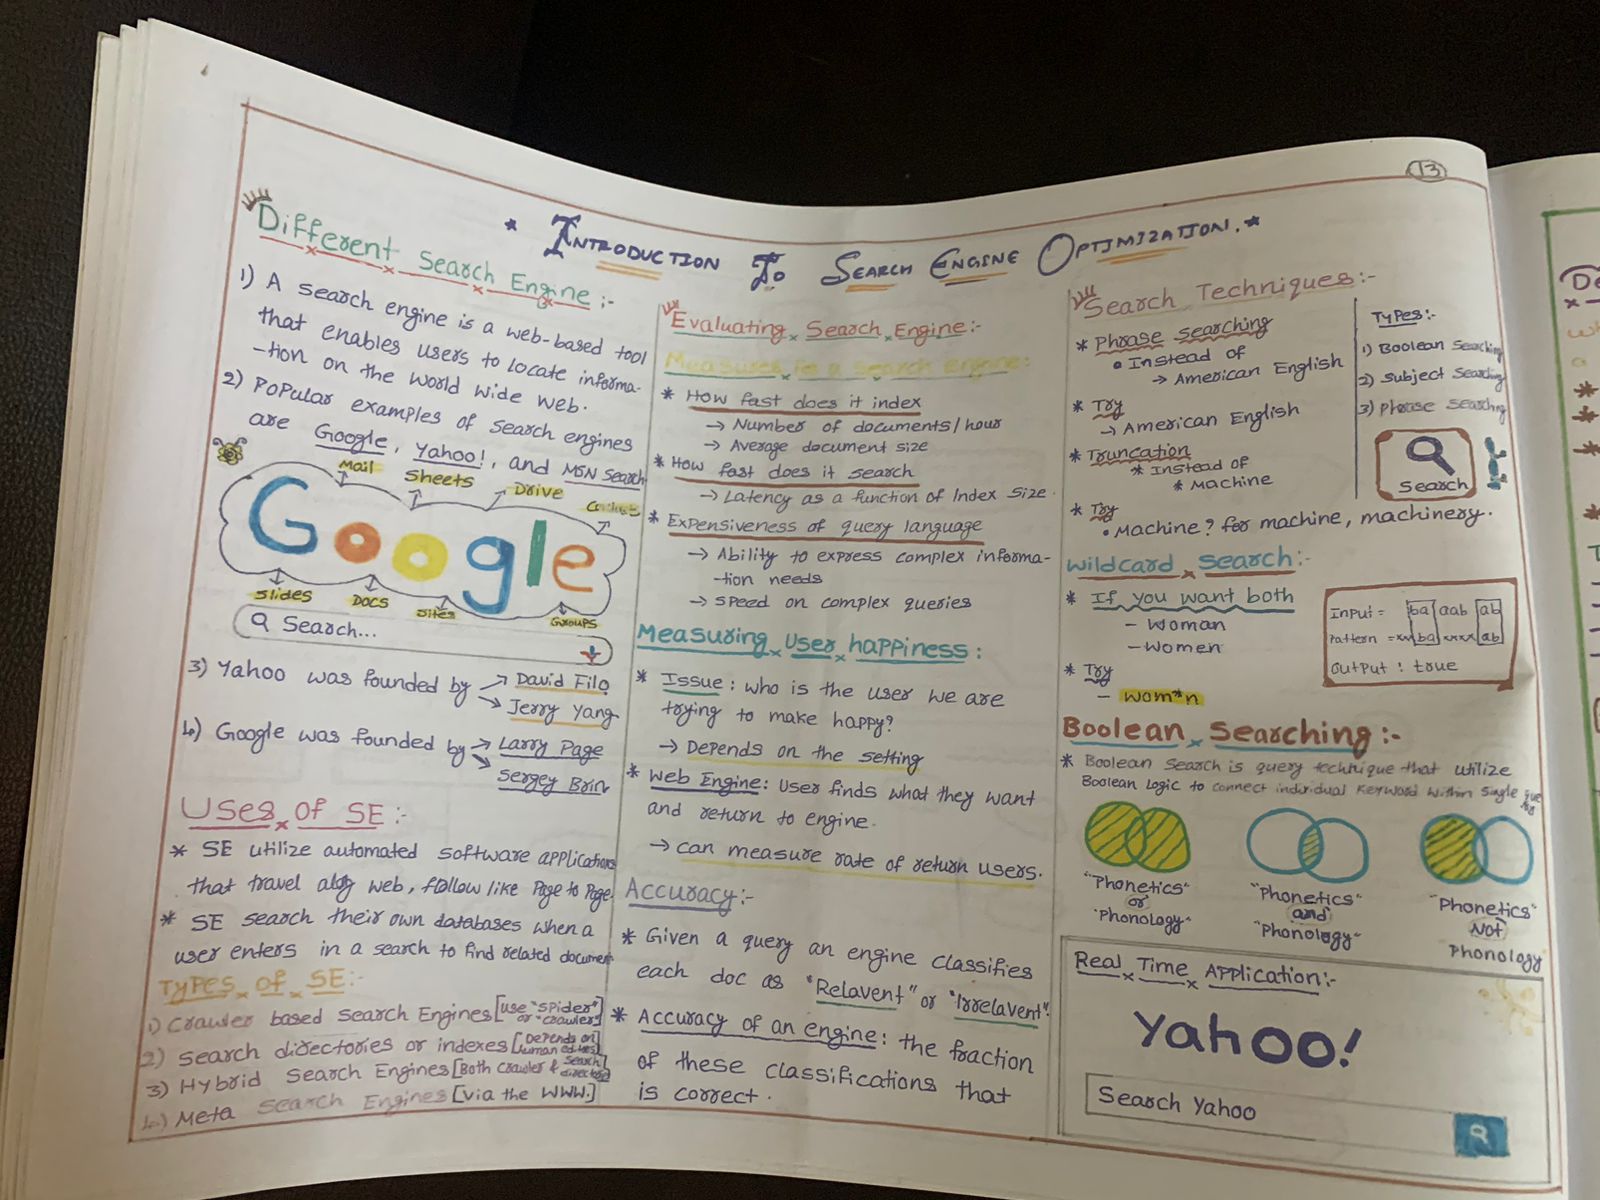 13
* Introduction To Search Engine Optimization. *
Different Search Engine :-
1) A search engine is a web-based tool
that enables users to locate informa-
-tion on the world wide web.
2) Popular examples of search engines
are Google, Yahoo!, and MSN Search
Mail
Sheets
Drive
Google
Slides
Docs
Sites
Groups
Search...
3) Yahoo was founded by → David Filo
→ Jerry Yang
4) Google was founded by → Larry Page
→ Sergey Brin
Uses of SE :-
* SE utilize automated software applications
that travel along web, follow like Page to Page.
* SE search their own databases when a
user enters in a search to find related document
Types of SE :-
1) Crawler based Search Engines [use "spider"
or "crawler"]
2) Search directories or indexes [Depends on
human editors]
3) Hybrid Search Engines [Both crawler & search
4) Meta Search Engines [via the WWW.]
Evaluating Search Engine :-
Measures for a search engine :
* How fast does it index
→ Number of documents/hour
→ Average document size
* How fast does it search
→ Latency as a function of Index size.
* Expensiveness of query language
→ Ability to express complex informa-
-tion needs
→ Speed on complex queries
Measuring User happiness :
* Issue : who is the user we are
trying to make happy?
→ Depends on the setting
* Web Engine : User finds what they want
and return to engine.
→ can measure rate of return users.
Accuracy :-
* Given a query an engine classifies
each doc as "Relavent" or "Irrelavent".
* Accuracy of an engine : the fraction
of these classifications that
is correct.
Search Techniques :-
* Phrase searching
• Instead of
→ American English
* Try
→ American English
* Truncation
* Instead of
* Machine
* Try
• Machine? for machine, machinery.
Types :-
1) Boolean Searching
2) Subject Searching
3) Phrase Searching
Search
Wildcard search :-
* If you want both
- Woman
- Women
* Try
- Wom*n
Input = ba aab ab
Pattern = ** ba **** ab
Output : true
Boolean Searching :-
* Boolean Search is query technique that utilize
Boolean Logic to connect individual keyword within single
"Phonetics"
or
"Phonology"
"Phonetics"
and
"Phonology"
"Phonetics"
Not
Phonology
Real Time Application :-
Yahoo!
Search Yahoo